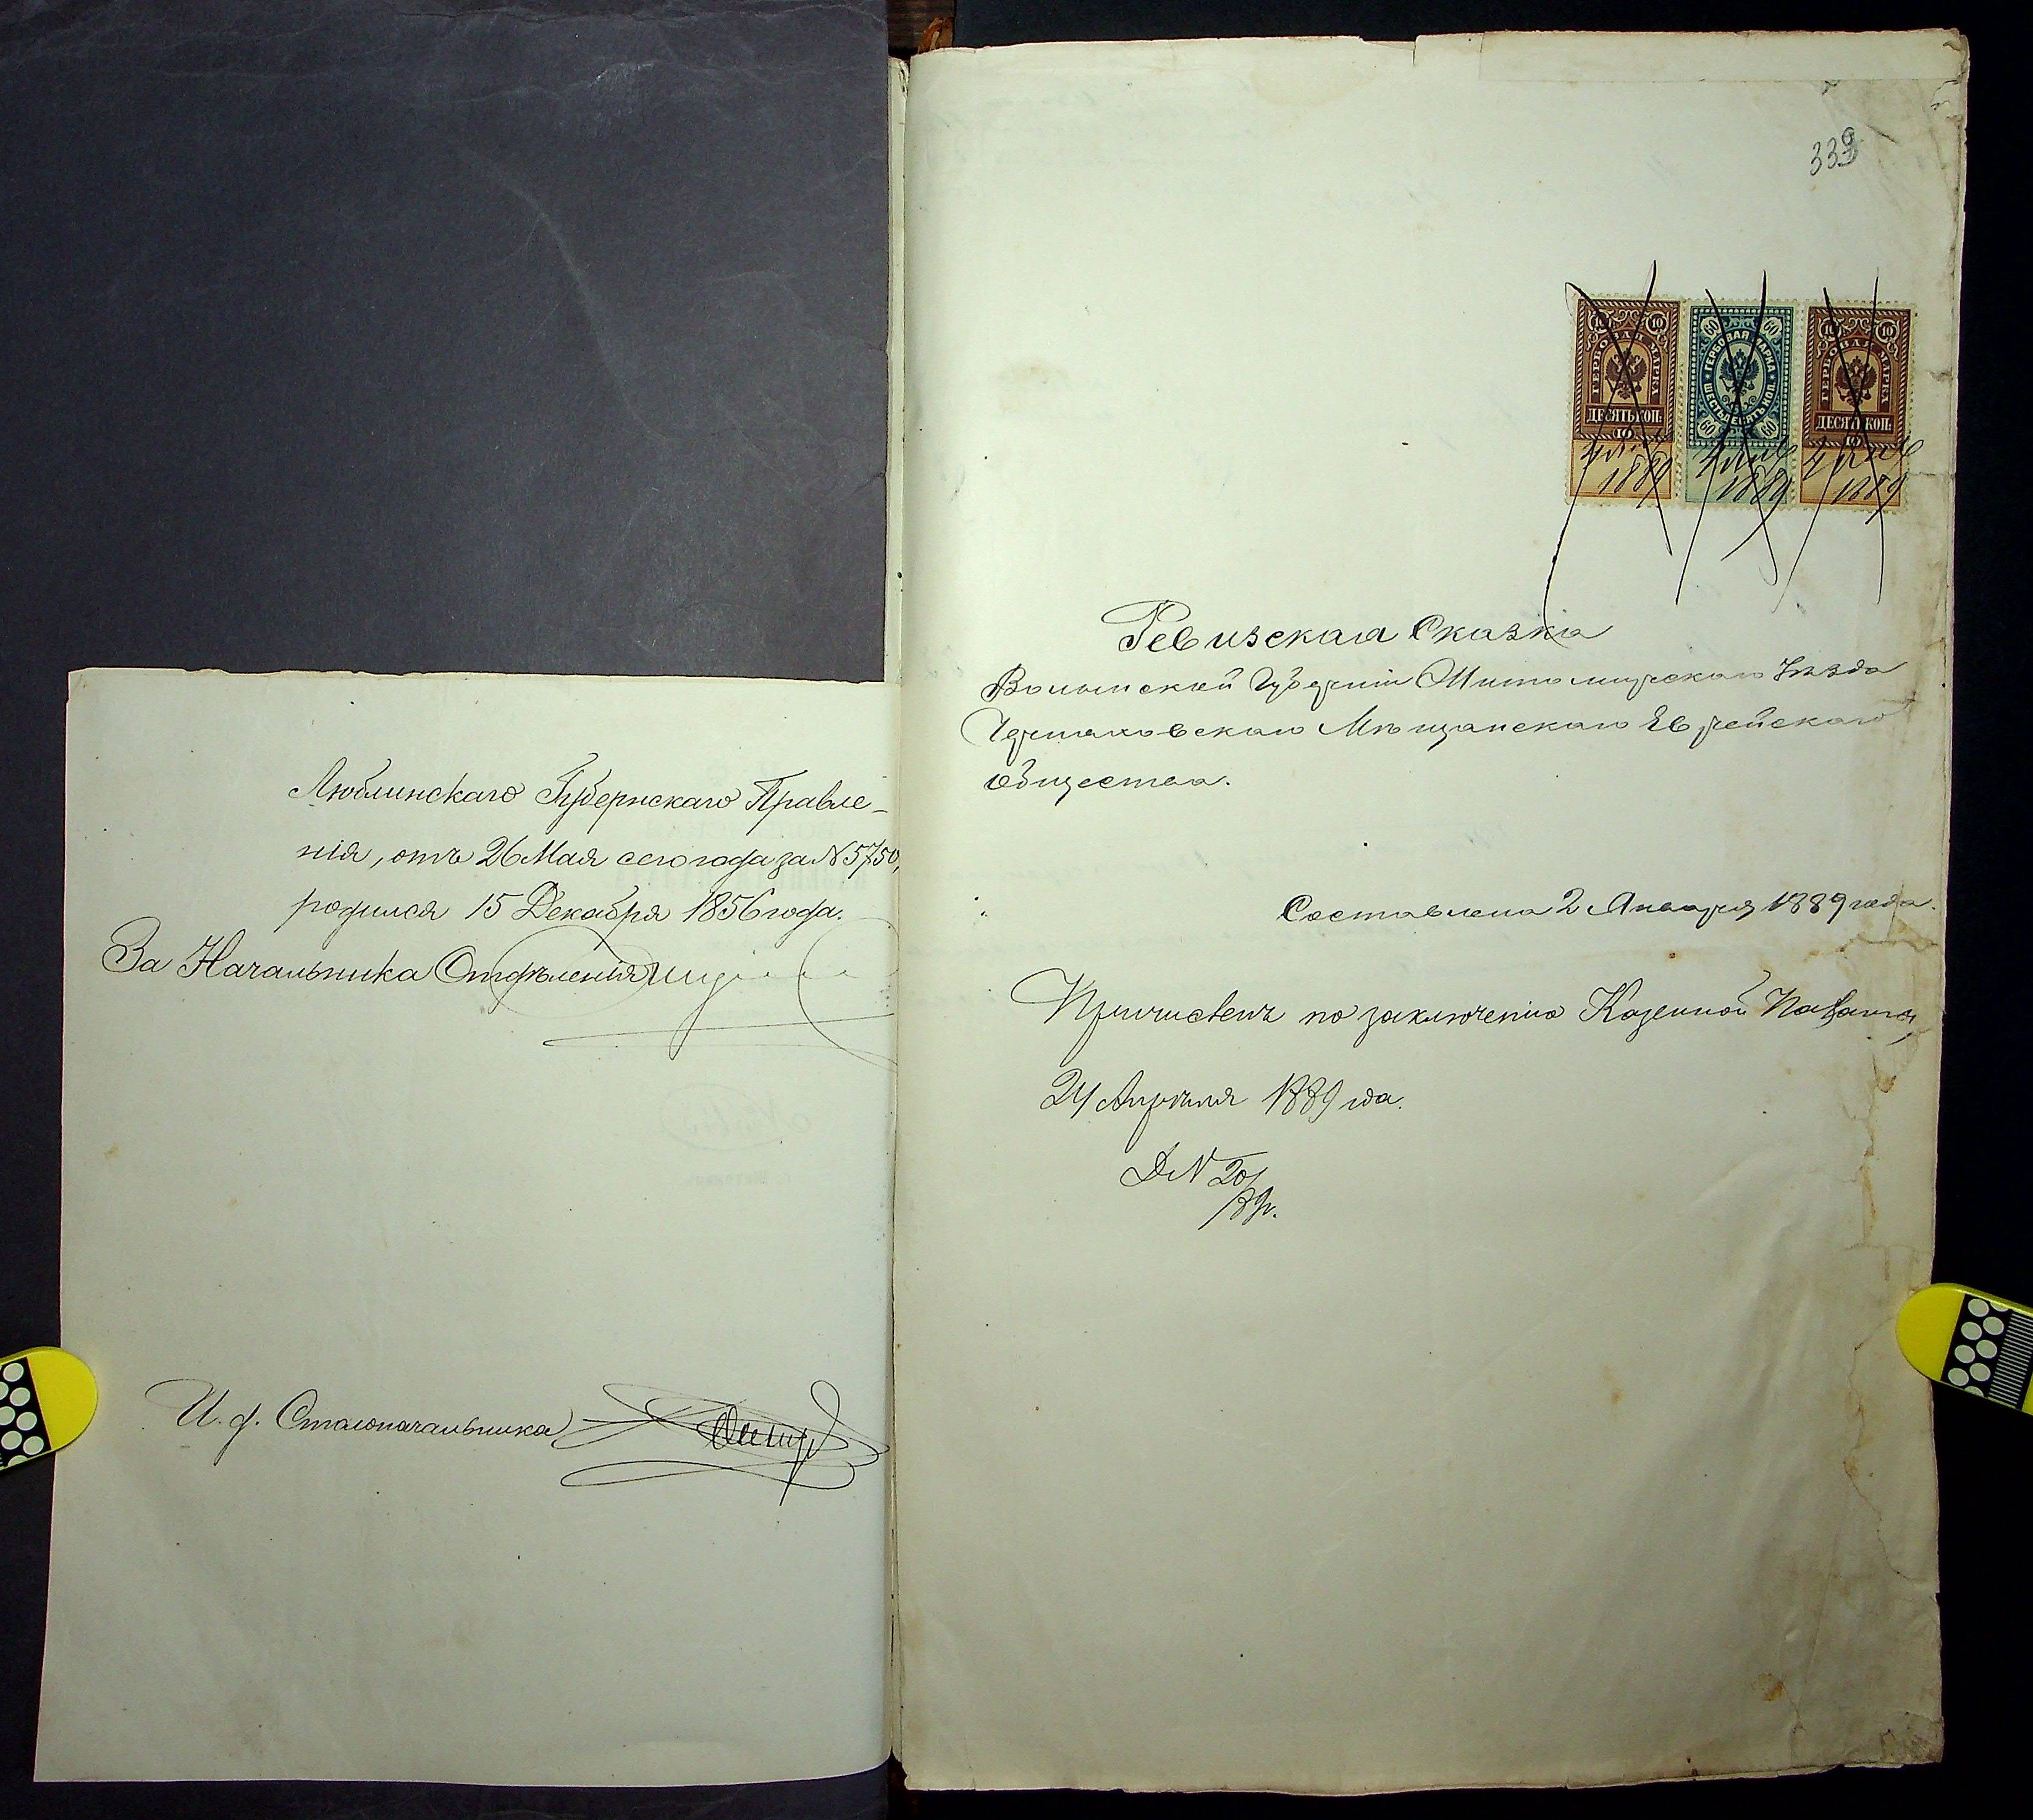 Люблинскаго Губернскаго Правле-
нія, отъ 26 Мая сего года за № 5750,
родился 15 Декабря 1856 года.
За Начальника Отдѣленія
И. д. Столоначальника
339
10 10
ГЕРБОВАЯ МАРКА
ДЕСЯТЬ КОП.
10
1889
60 60
ГЕРБОВАЯ МАРКА
ШЕСТЬДЕСЯТЪ КОП.
60 60
1889
10 10
ГЕРБОВАЯ МАРКА
ДЕСЯТЬ КОП.
10
1889
Ревизская Сказка
Волынской Губерніи Житомирскаго Уѣзда
Черняховскаго Мѣщанскаго Еврейскаго
общества.
Составлена 2 Января 1889 года.
Причисленъ по заключенію Казенной Палаты,
24 Апрѣля 1889 года.
Д № 20/
89 г.